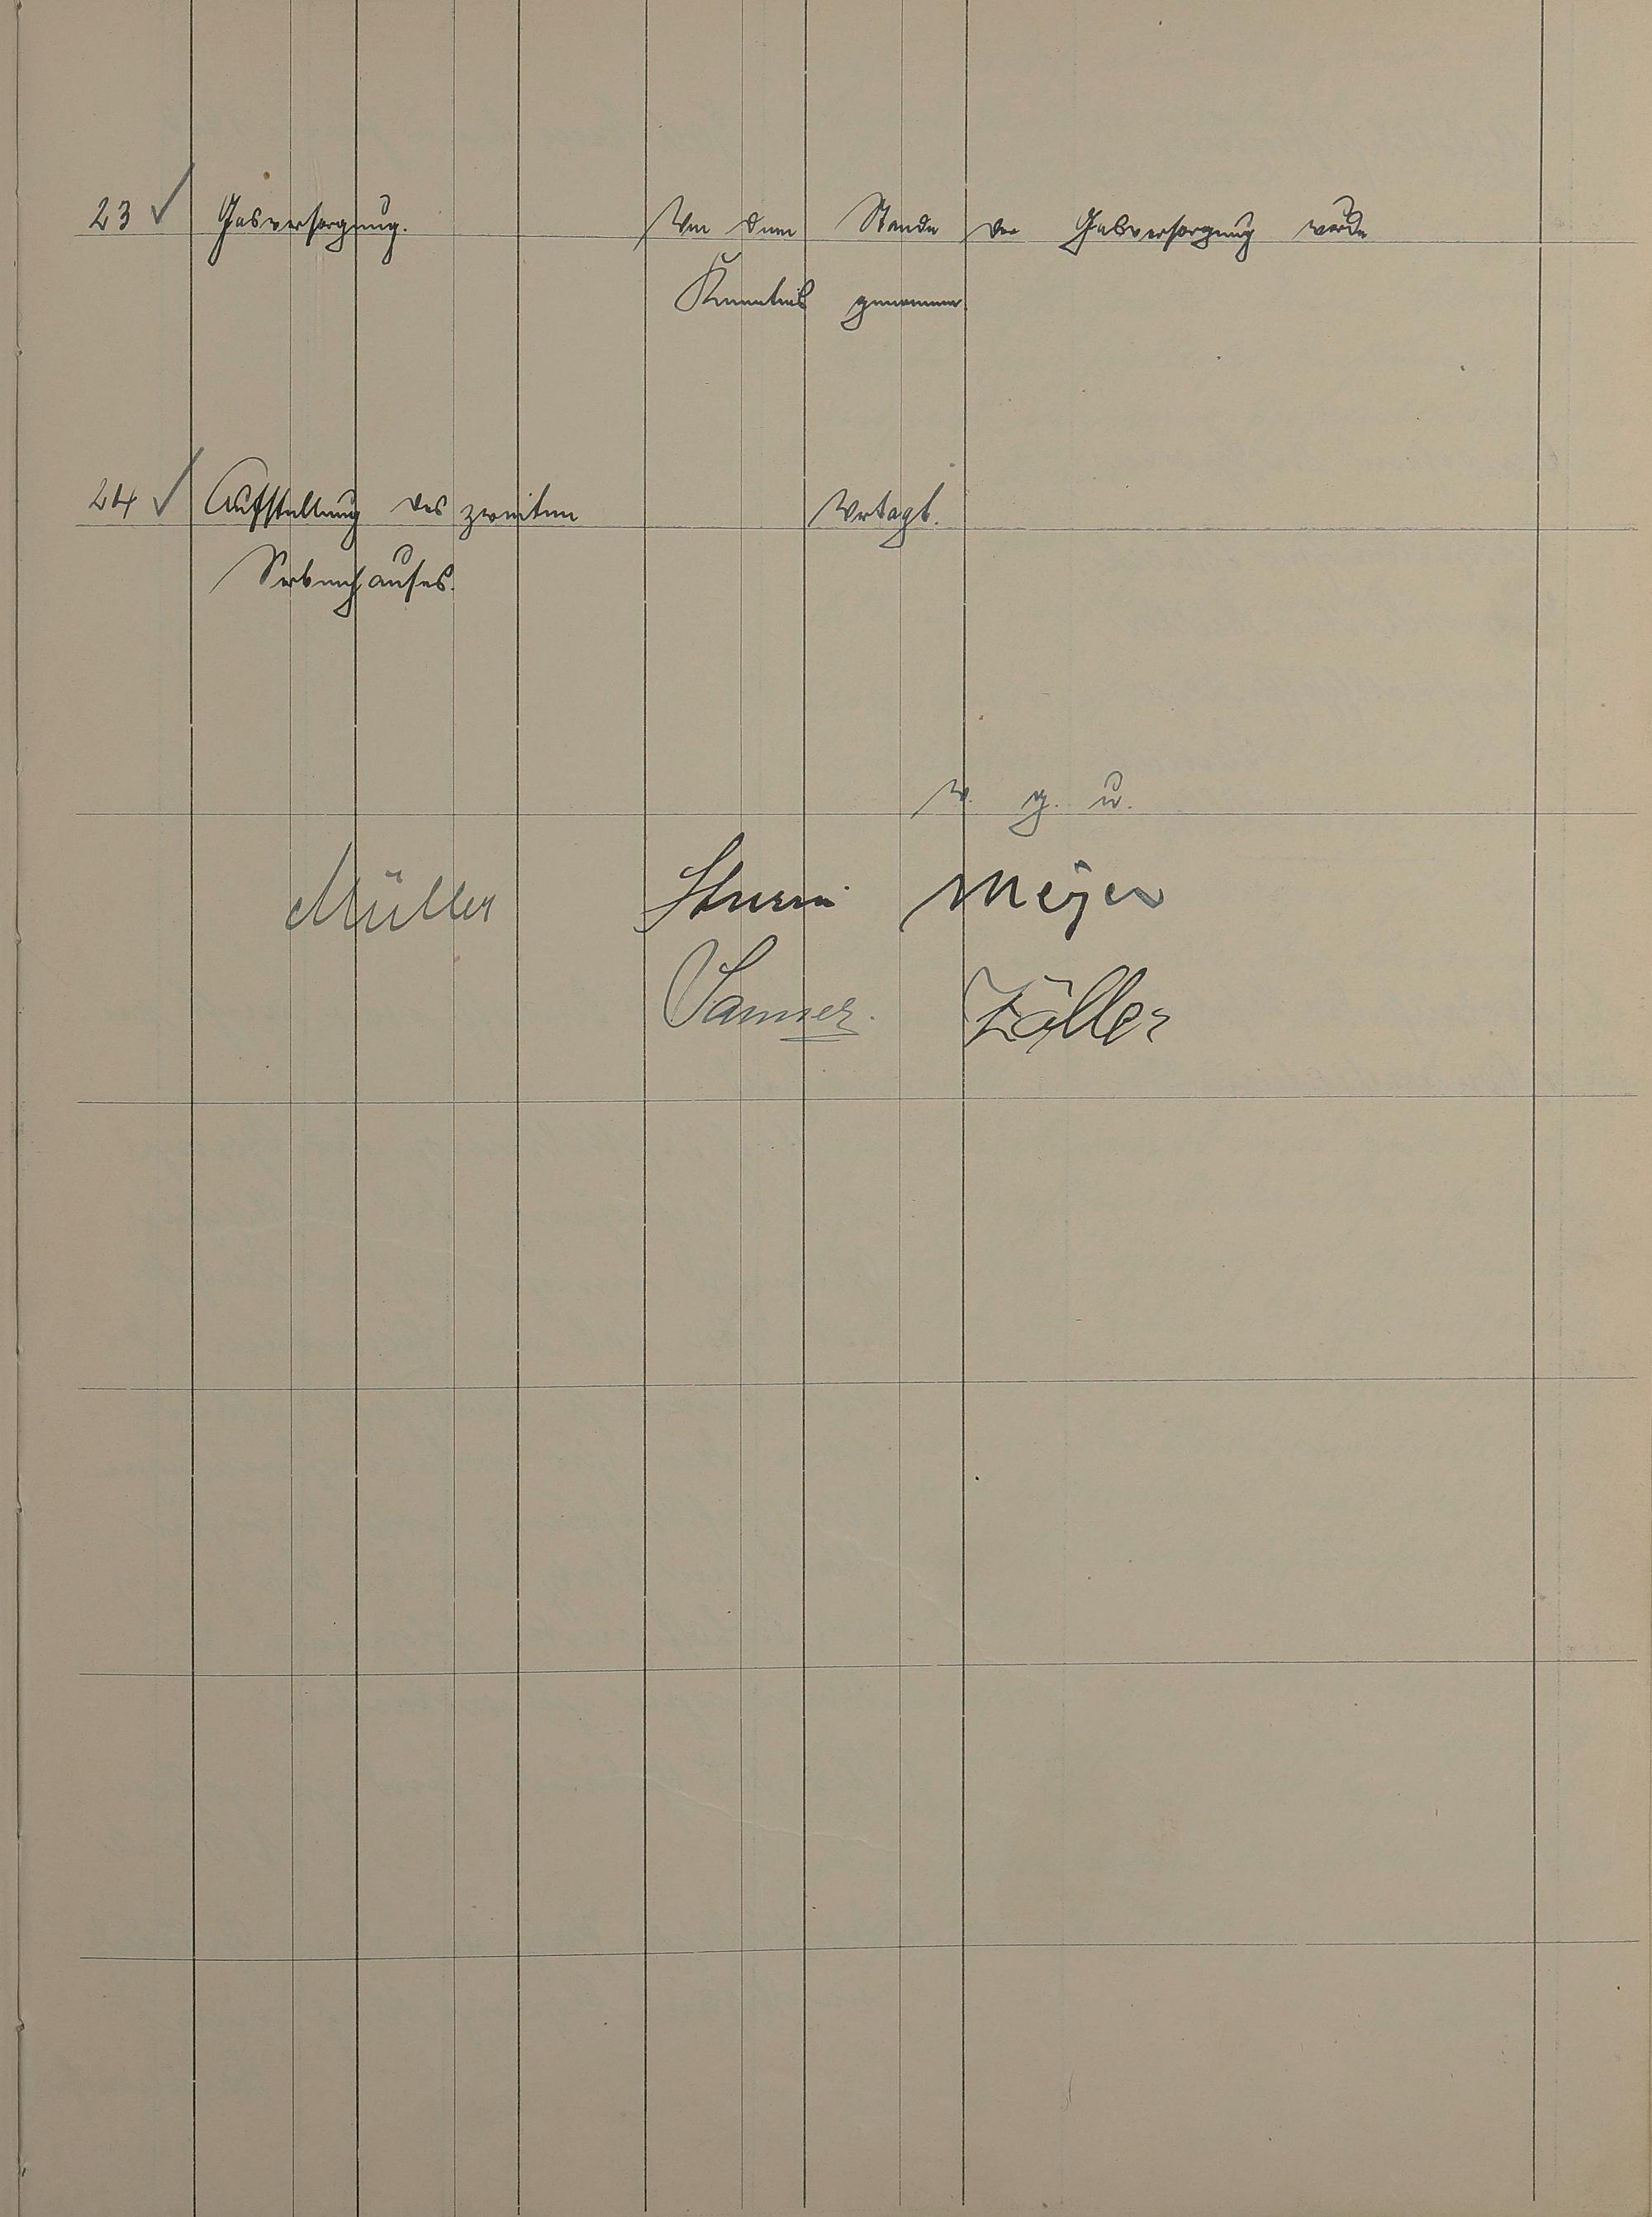 23 ✓ Gasversorgung. Von dem Stande der Gasversorgung wurde
Kenntnis genommen.
24 ✓ Aufstellung des zweiten Vertagt.
Serbenhauses.
v. g. u.
Müller Sturm Meyer
Sanner. Zöller